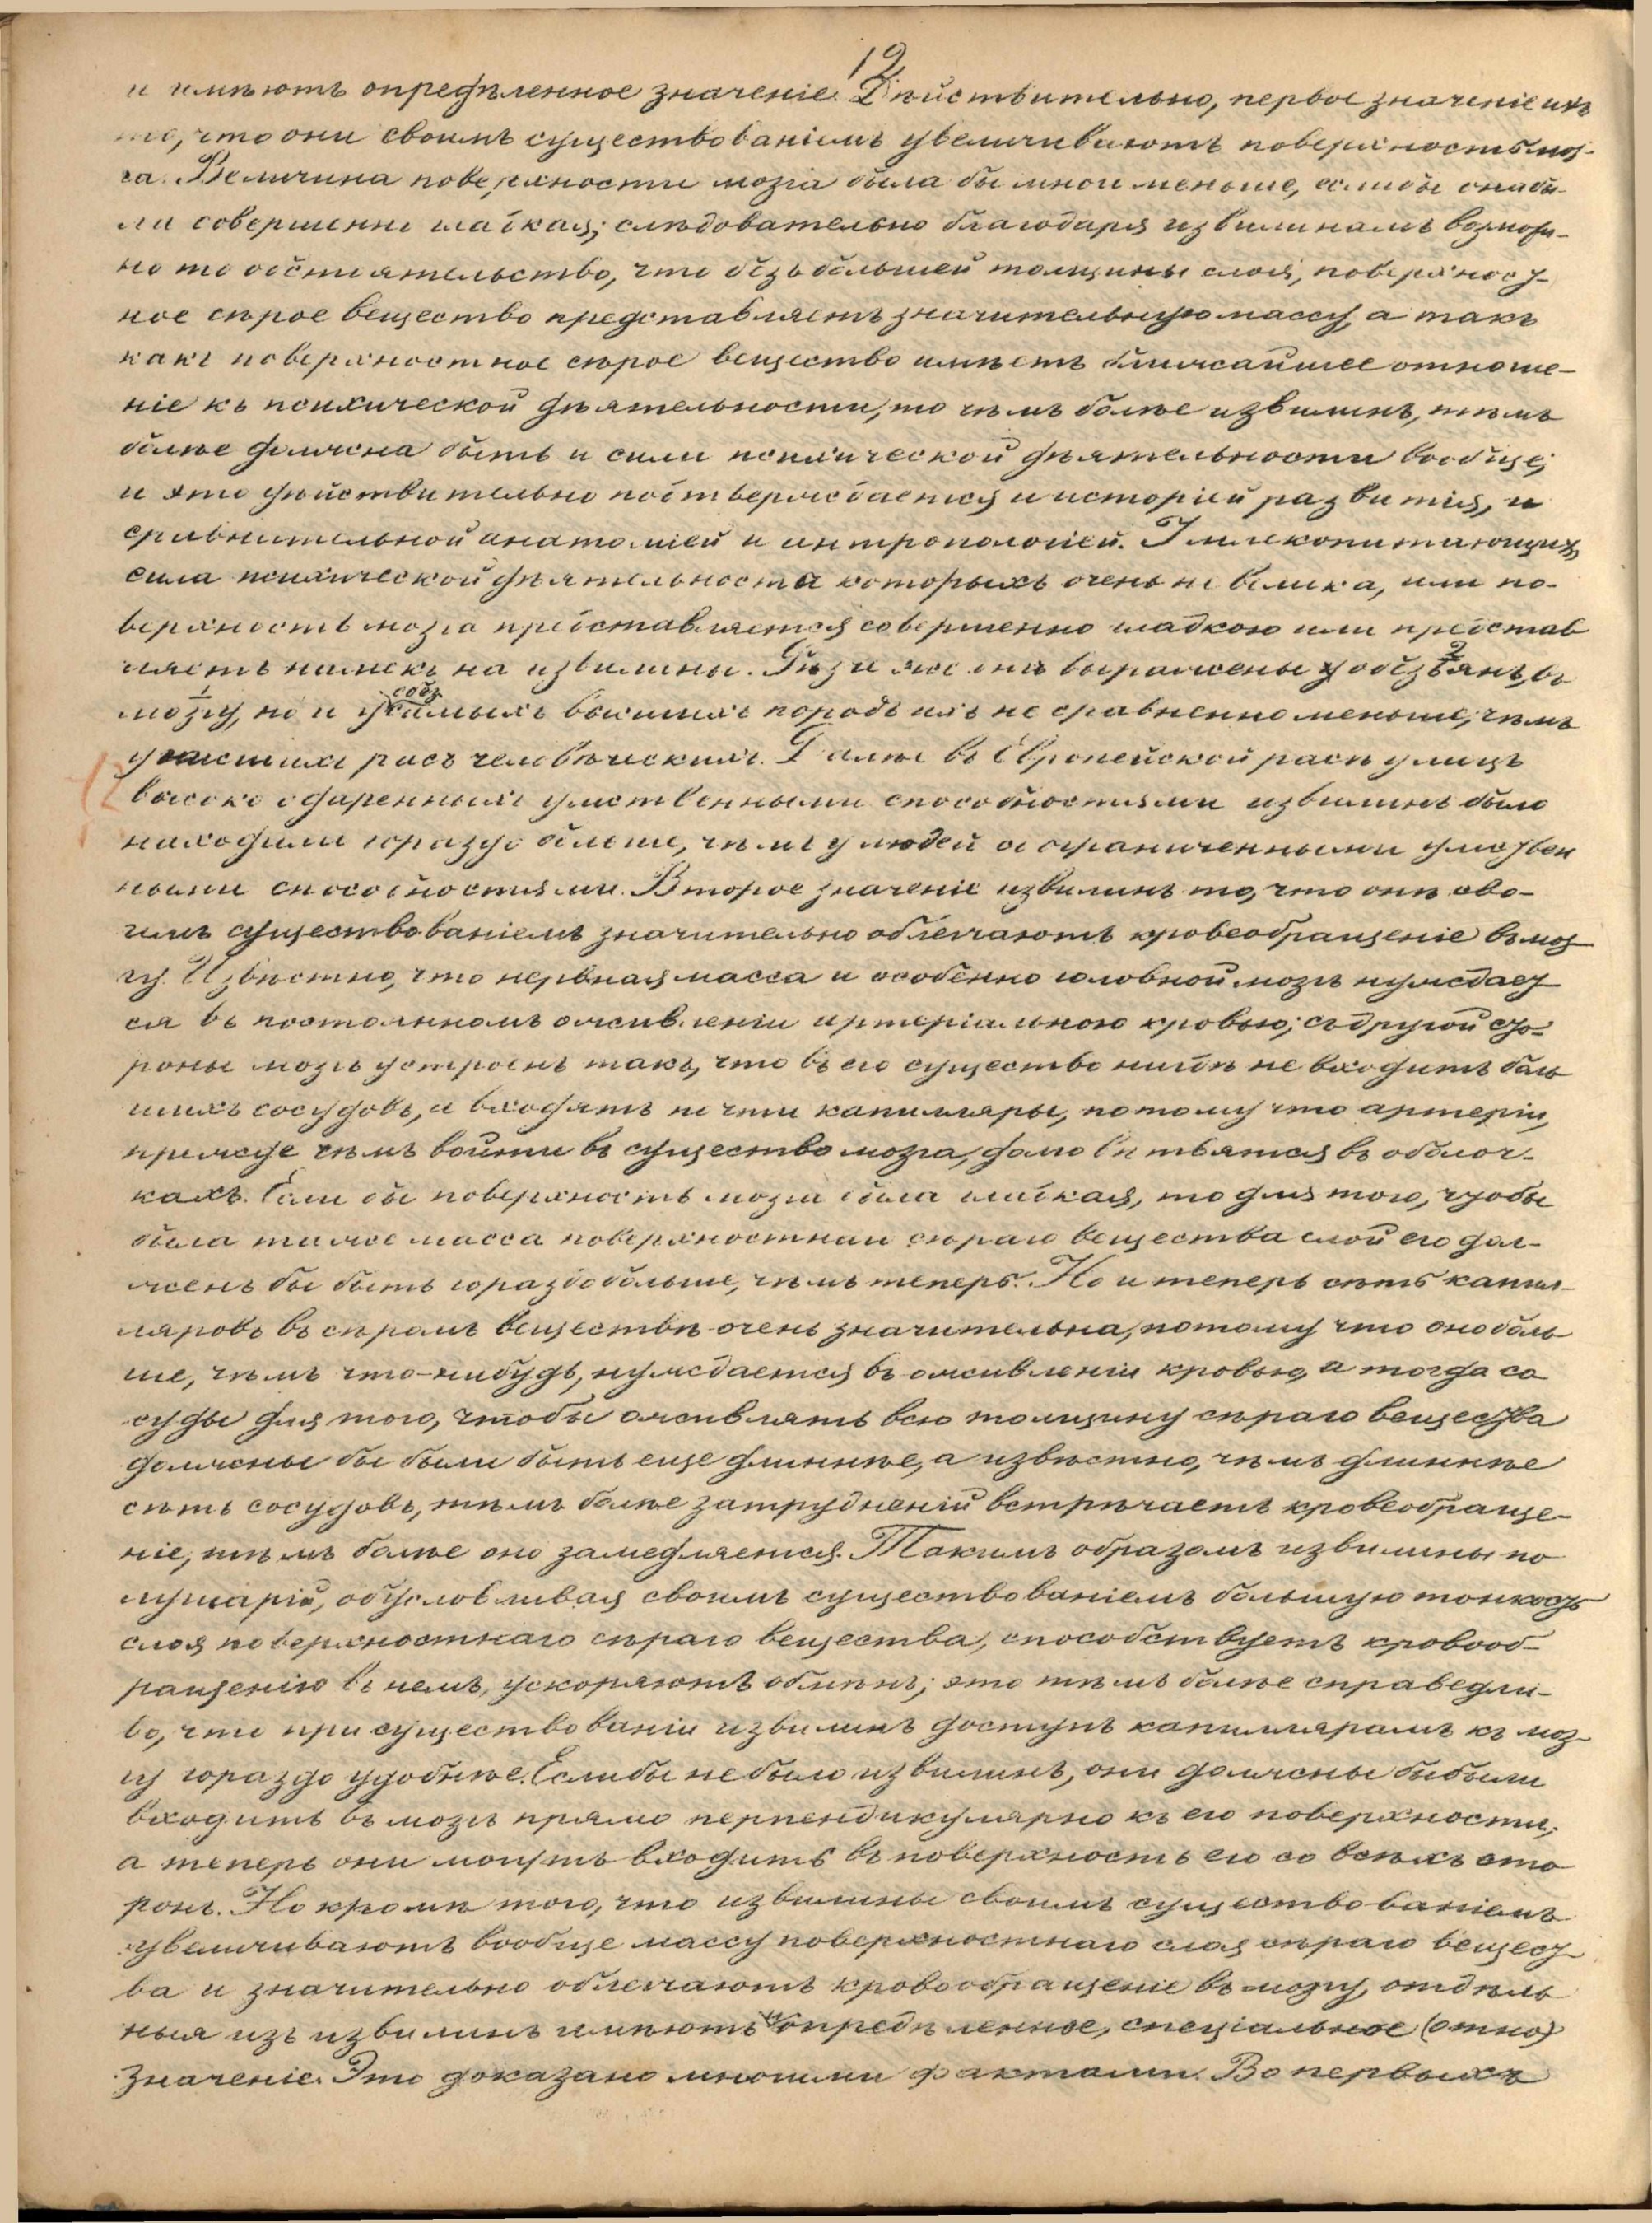 12
и имѣютъ опредѣленное значеніе. Дѣйствительно, первое значеніе ихъ
то, что они своимъ существованіемъ увеличиваютъ поверхность моз-
га. Величина поверхности мозга была бы много меньше, если бы она бы-
ла совершенно гладкая; слѣдовательно благодаря извилинамъ возмож-
но то обстоятельство, что безъ большей толщины слоя, поверхност-
ное сѣрое вещество представляетъ значительную массу, а такъ
какъ поверхностное сѣрое вещество имѣетъ ближайшее отноше-
ніе къ психической дѣятельности, то чѣмъ болѣе извилинъ, тѣмъ
болѣе должна быть и сила психической дѣятельности вообще;
и это дѣйствительно подтверждается и исторіей развитія, и
сравнительной анатоміей и антропологіей. У млекопитающихъ,
сила психической дѣятельности которыхъ очень не велика, или по-
верхность мозга представляется совершенно гладкою или представ
ляетъ намекъ на извилины. Рѣзче же они выражены у обезьянъ, въ
мозгу, но и у самыхъ высшихъ породъ ихъ не сравненно меньше, чѣмъ
у низшихъ расъ человѣческихъ. Далѣе въ Европейской расѣ у лицъ
высоко одаренныхъ умственными способностями извилинъ было
находимо гораздо больше, чѣмъ у людей съ ограниченными умствен
ными способностями. Второе значеніе извилинъ то, что они сво-
имъ существованіемъ значительно облегчаютъ кровеобращеніе въ моз-
гу. Извѣстно, что нервная масса и особенно головной мозгъ нуждает-
ся въ постоянномъ оживленіи артеріальною кровью; съ другой сто-
роны мозгъ устроенъ такъ, что въ его существо нигдѣ не входитъ боль
шихъ сосудовъ, а входятъ почти капилляры, потому что артеріи,
прежде чѣмъ войти въ существо мозга, долго вѣтвятся въ оболоч-
кахъ. Если бы поверхность мозга была гладкая, то для того, чтобы
была та же масса поверхностнаго сѣраго вещества слой его дол-
женъ бы быть гораздо больше, чѣмъ теперь. Но и теперь сѣть капил-
ляровъ въ сѣромъ веществѣ очень значительна, потому что оно боль
ше, чѣмъ что-нибудь, нуждается въ оживленіи кровью, а тогда со
суды для того, чтобы оживлять всю толщину сѣраго вещества
должны бы были быть еще длиннѣе, а извѣстно, чѣмъ длиннѣе
сѣть сосудовъ, тѣмъ болѣе затрудненій встрѣчаетъ кровеобраще-
ніе, тѣмъ болѣе оно замедляется. Такимъ образомъ извилины по
лушарій, обусловливая своимъ существованіемъ большую тонкость
слоя поверхностнаго сѣраго вещества, способствуетъ кровооб-
ращенію въ немъ, ускоряютъ обмѣнъ; это тѣмъ болѣе справедли-
во, что при существованіи извилинъ доступъ капиллярамъ къ моз-
гу гораздо удобнѣе. Если бы не было извилинъ, они должны бы были
входить въ мозгъ прямо перпендикулярно къ его поверхности;
а теперь они могутъ входить въ поверхность его со всѣхъ сто
ронъ. Но кромѣ того, что извилины своимъ существованіемъ
увеличиваютъ вообще массу поверхностнаго слоя сѣраго вещест-
ва и значительно облегчаютъ кровообращеніе въ мозгу, отдѣль
ныя изъ извилинъ имѣютъ и опредѣленное, спеціальное (отно)
значеніе. Это доказано многими фактами. Во первыхъ